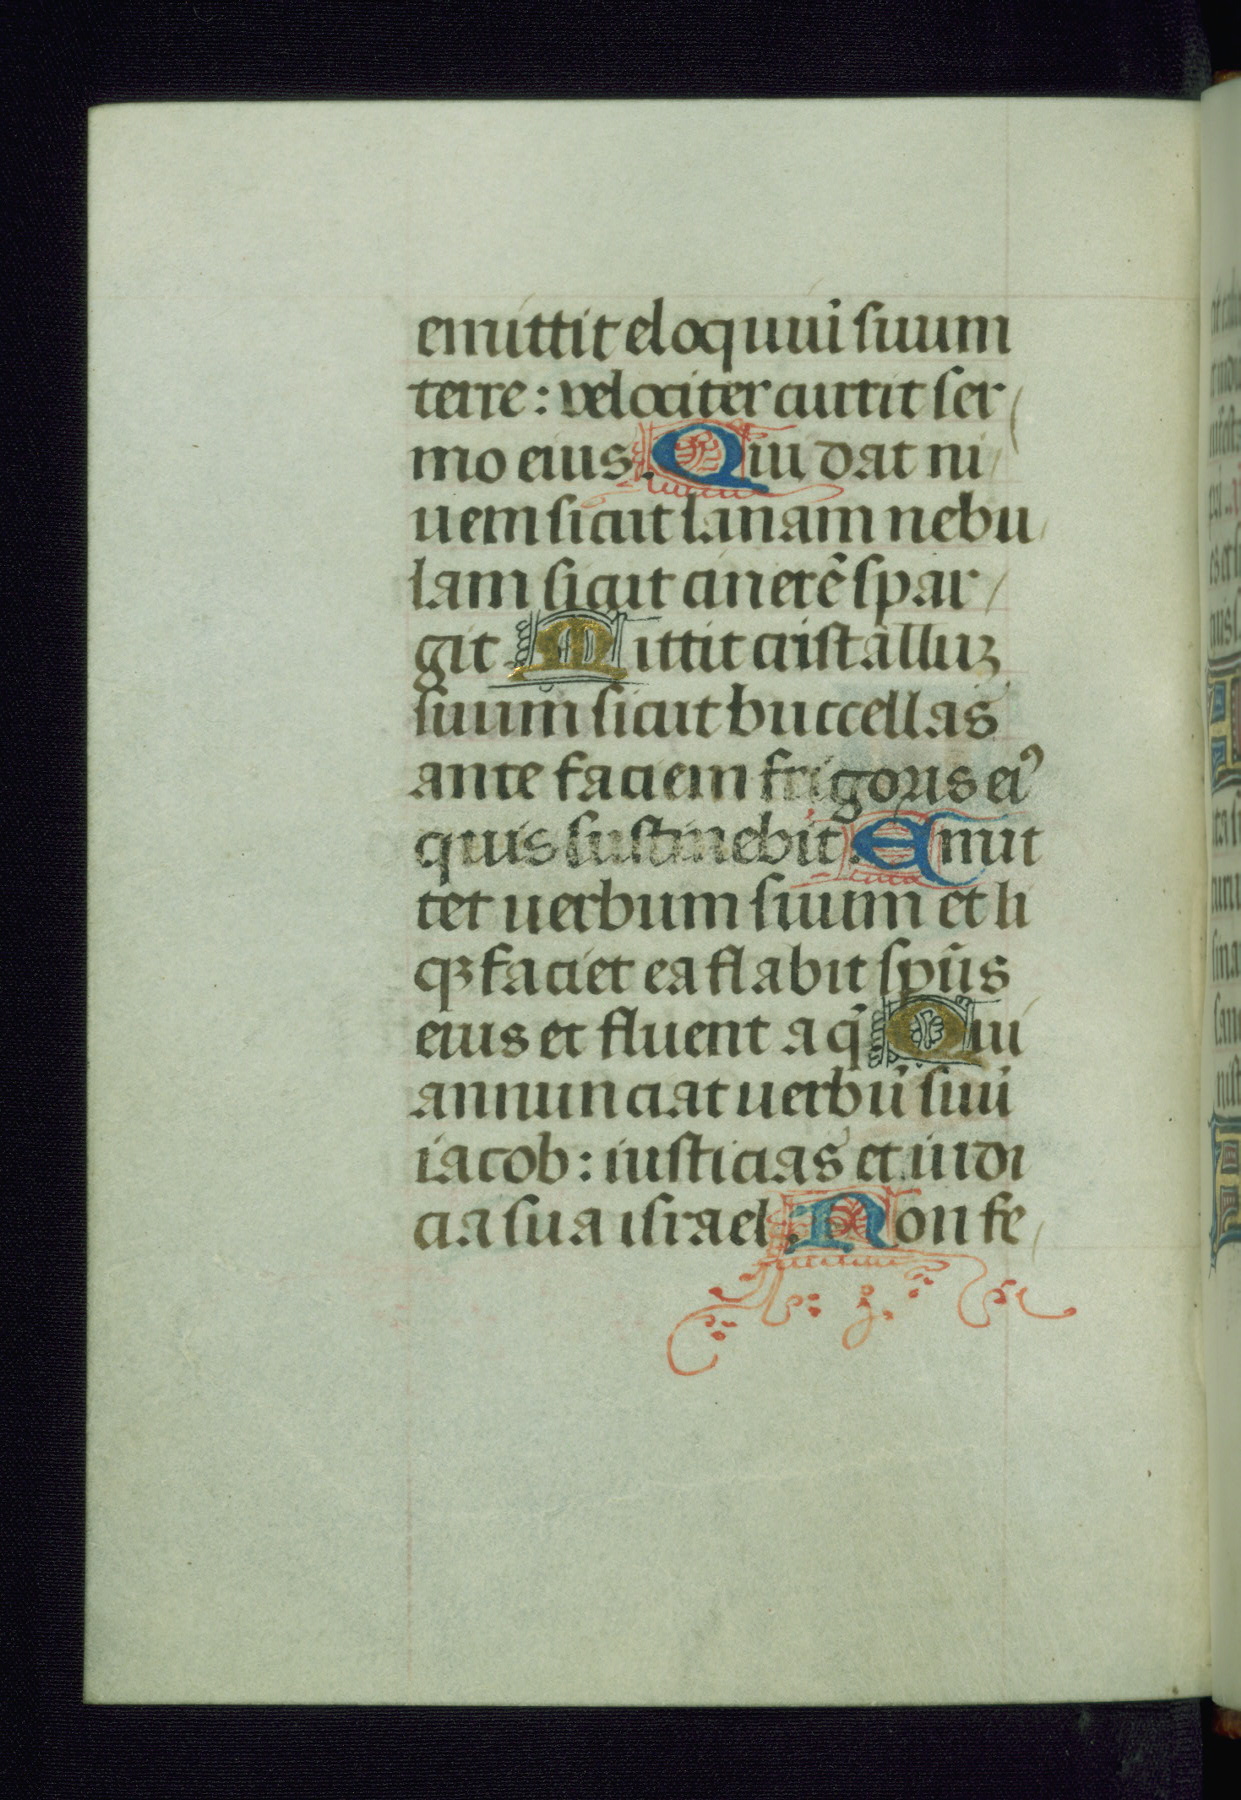 emittit eloquiū suum
terre : velociter currit ser
mo eius. Qui dat ni
uem sicut lanam nebu
lam sicut cinerē spar
git. Mittit cristalluꝫ
suum sicut buccellas
ante faciem frigoris eiꝰ
quis sustinebit. Emit
tet uerbum suum et li
qꝫfaciet ea flabit spūs
eius et fluent aq̄ Qui
annunciat uerbū suū
iacob : iusticias et iudi
cia sua israel. Non fe